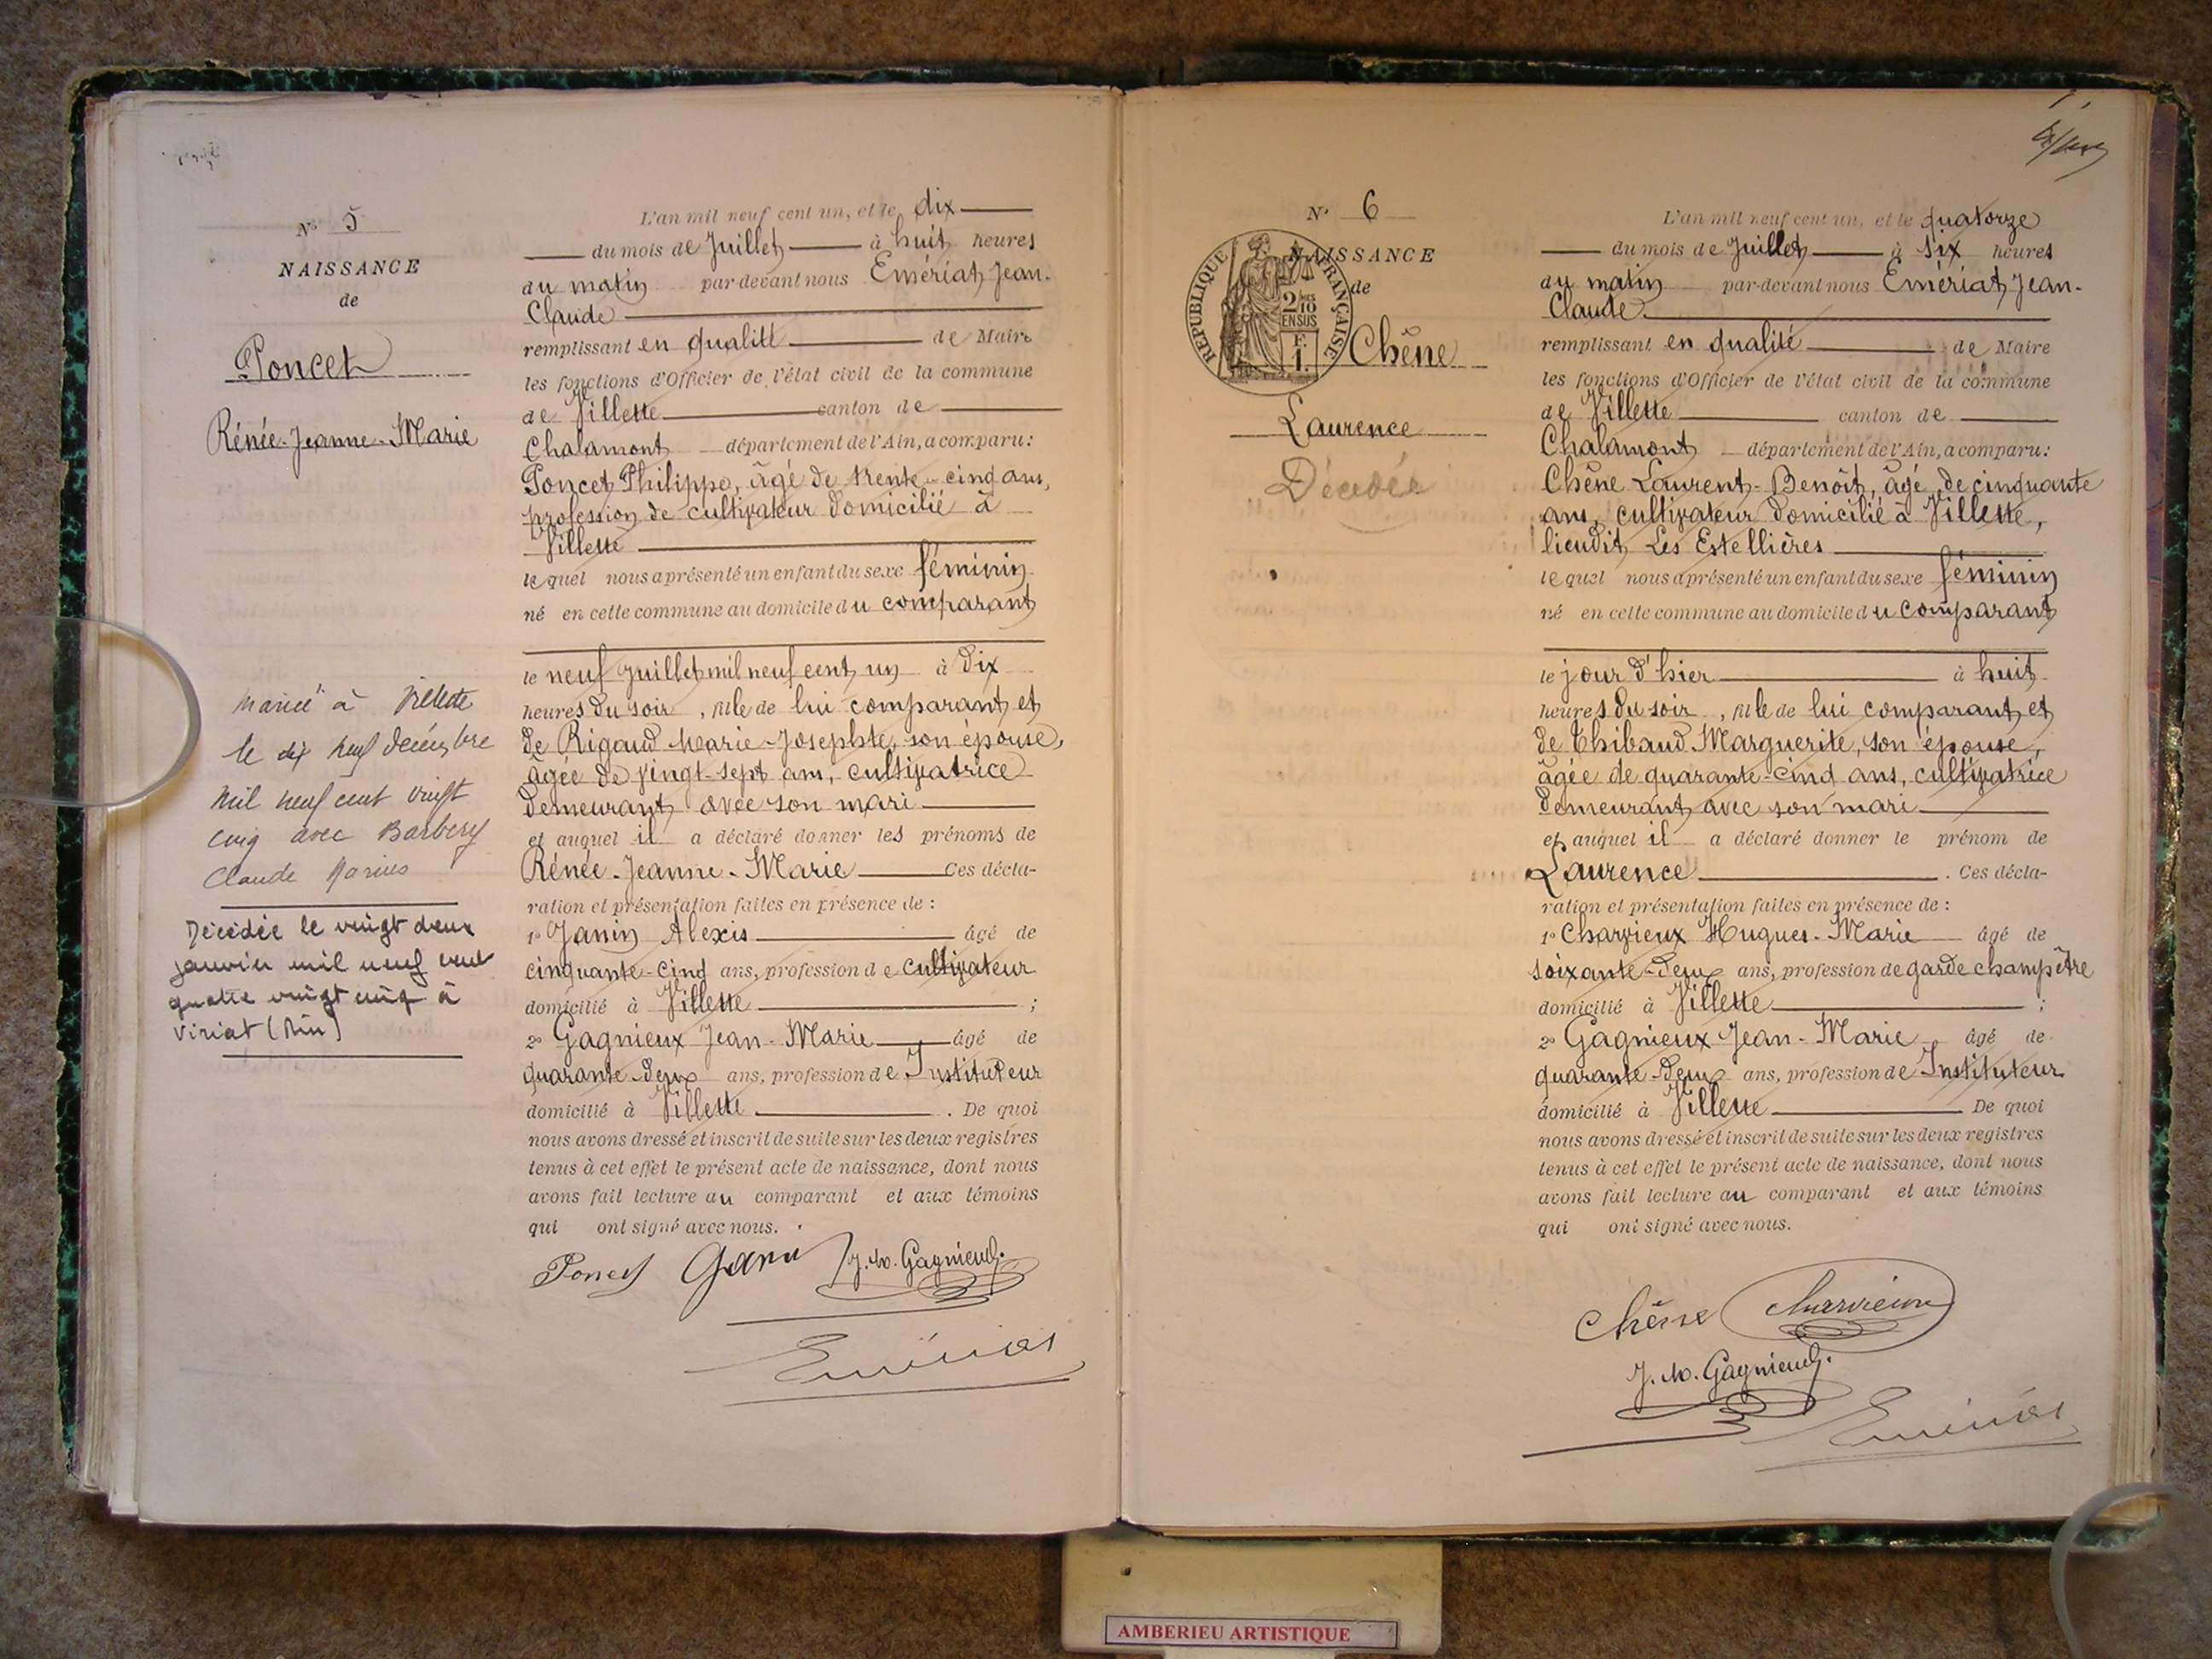 N° 5
NAISSANCE
de
Poncet
Rénée-Jeanne-Marie
mariée à Villette
le dix neuf décembre
mil neuf cent vingt
cinq avec Barbery
Claude Marius
Décédée le vingt deux
janvier mil neuf cent
quatre vingt cinq à
Viriat (Ain)
L'an mil neuf cent un, et le dix
du mois de Juillet à huit heures
du matin par-devant nous Emériat Jean-
Claude
remplissant en qualité de Maire
les fonctions d'Officier de l'état civil de la commune
de Villette canton de
Chalamont département de l'Ain, a comparu:
Poncet Philippe, âgé de trente-cinq ans,
profession de cultivateur domicilié à
Villette
lequel nous a présenté un enfant du sexe féminin
né en cette commune au domicile du comparant
le neuf Juillet mil neuf cent un à dix
heures du soir, fille de lui comparant et
de Rigaud Marie-Josephte, son épouse,
âgée de vingt-sept ans, cultivatrice
demeurant avec son mari
et auquel il a déclaré donner les prénoms de
Rénée-Jeanne-Marie Ces décla-
ration et présentation faites en présence de :
1° Janin Alexis âgé de
cinquante-cinq ans, profession de cultivateur
domicilié à Villette ;
2° Gagnieux Jean-Marie âgé de
quarante-deux ans, profession de Instituteur
domicilié à Villette . De quoi
nous avons dressé et inscrit de suite sur les deux registres
tenus à cet effet le présent acte de naissance, dont nous
avons fait lecture au comparant et aux témoins
qui ont signé avec nous.
Poncet Janin J. M. Gagnieux
Emériat
N° 6
NAISSANCE
de
RÉPUBLIQUE FRANÇAISE
2/10
EN SUS
F.
1.
Chêne
Laurence
Décédée
L'an mil neuf cent un, et le quatorze
du mois de Juillet à six heures
du matin par-devant nous Emériat Jean-
Claude
remplissant en qualité de Maire
les fonctions d'Officier de l'état civil de la commune
de Villette canton de
Chalamont département de l'Ain, a comparu:
Chêne Laurent-Benoît, âgé de cinquante
ans, cultivateur domicilié à Villette,
lieudit Les Estellières
lequel nous a présenté un enfant du sexe féminin
né en cette commune au domicile du comparant
le jour d'hier à huit
heures du soir, fille de lui comparant et
de Thibaud Marguerite, son épouse,
âgée de quarante-cinq ans, cultivatrice
demeurant avec son mari
et auquel il a déclaré donner le prénom de
Laurence . Ces décla-
ration et présentation faites en présence de :
1° Charvieux Hugues-Marie âgé de
soixante-deux ans, profession de garde champêtre
domicilié à Villette ;
2° Gagnieux Jean-Marie âgé de
quarante-deux ans, profession de Instituteur
domicilié à Villette De quoi
nous avons dressé et inscrit de suite sur les deux registres
tenus à cet effet le présent acte de naissance, dont nous
avons fait lecture au comparant et aux témoins
qui ont signé avec nous.
Chêne Charvieux
J. M. Gagnieux
Emériat
AMBERIEU ARTISTIQUE